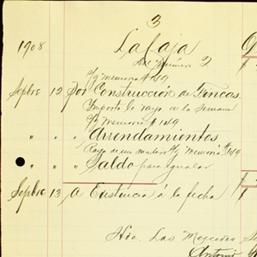 3
1908 La Caja
del Número 2
S/g memoria # 149
Sepbre 12 Por Construcción de Fincas
Importe la raya de la Semana
S/g Memoria # 149
" " " Arrendamientos
Renta de un S/g Memoria # 149
" " " Saldo para igualar
Sepbre 13 A Existencia á la fecha
Hda. Las Mercedes
Antonio